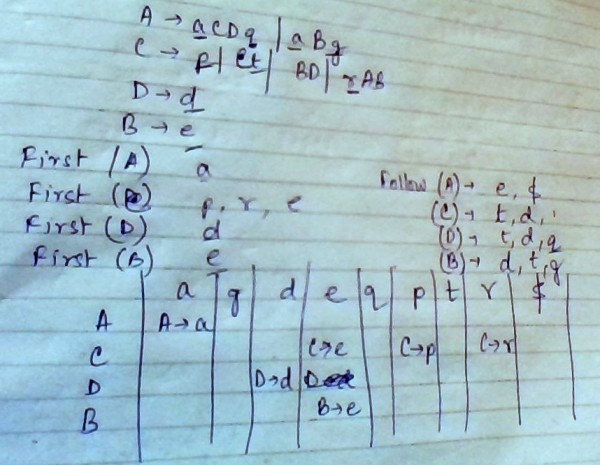 A → aCDq | aBg
C → p | Ct | BD | rAB
D → d
B → e
First (A) a
First (C) p, r, e
First (D) d
First (B) e
Follow (A) → e, $
(C) → t, d,
(D) → t, d, q
(B) → d, t, g
a g d e q p t r $
A A→a
C C→e C→p C→r
D D→d
B B→e